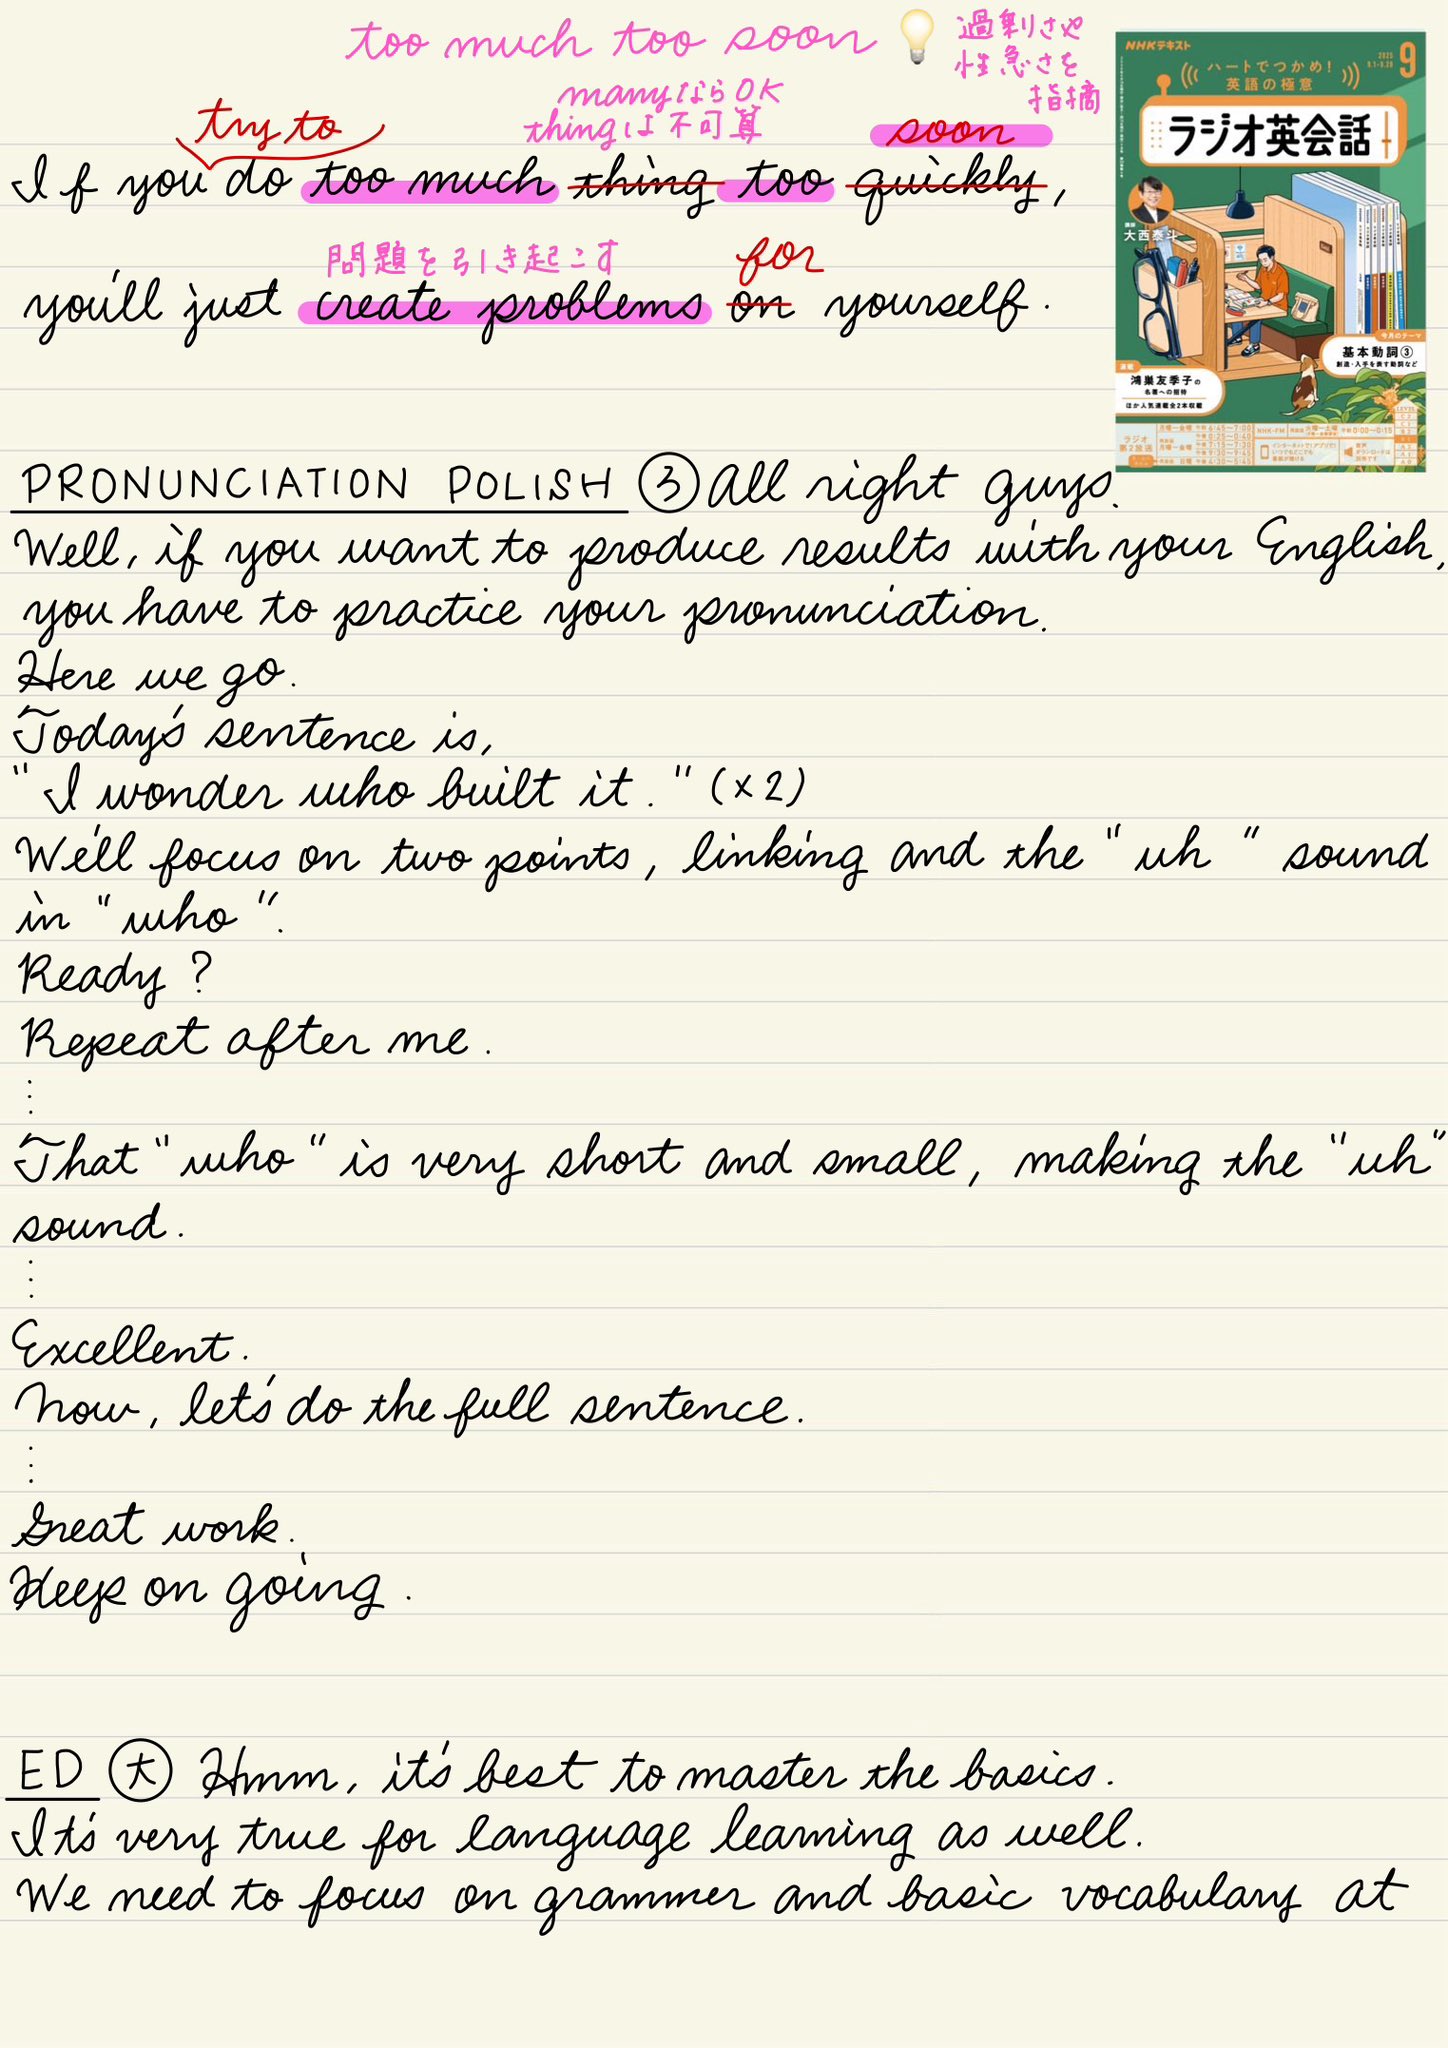 too much too soon 💡 過剰さや
性急さを
指摘
manyならOK
thingは不可算
try to
soon
If you do too much thing too quickly,
問題を引き起こす
for
you'll just create problems on yourself.
NHKテキスト
2025
9
ハートでつかめ!
英語の極意
ラジオ英会話
講師
大西泰斗
今月のテーマ
基本動詞③
創造・入手を表す動詞など
連載
鴻巣友季子の
名著への招待
ほか人気連載全2本収載
PRONUNCIATION POLISH ③ All right guys.
Well, if you want to produce results with your English,
you have to practice your pronunciation.
Here we go.
Today's sentence is,
"I wonder who built it." (×2)
We'll focus on two points, linking and the "uh" sound
in "who".
Ready?
Repeat after me.
⋮
That "who" is very short and small, making the "uh"
sound.
⋮
Excellent.
Now, let's do the full sentence.
⋮
Great work.
Keep on going.
ED 大 Hmm, it's best to master the basics.
It's very true for language learning as well.
We need to focus on grammer and basic vocabulary at